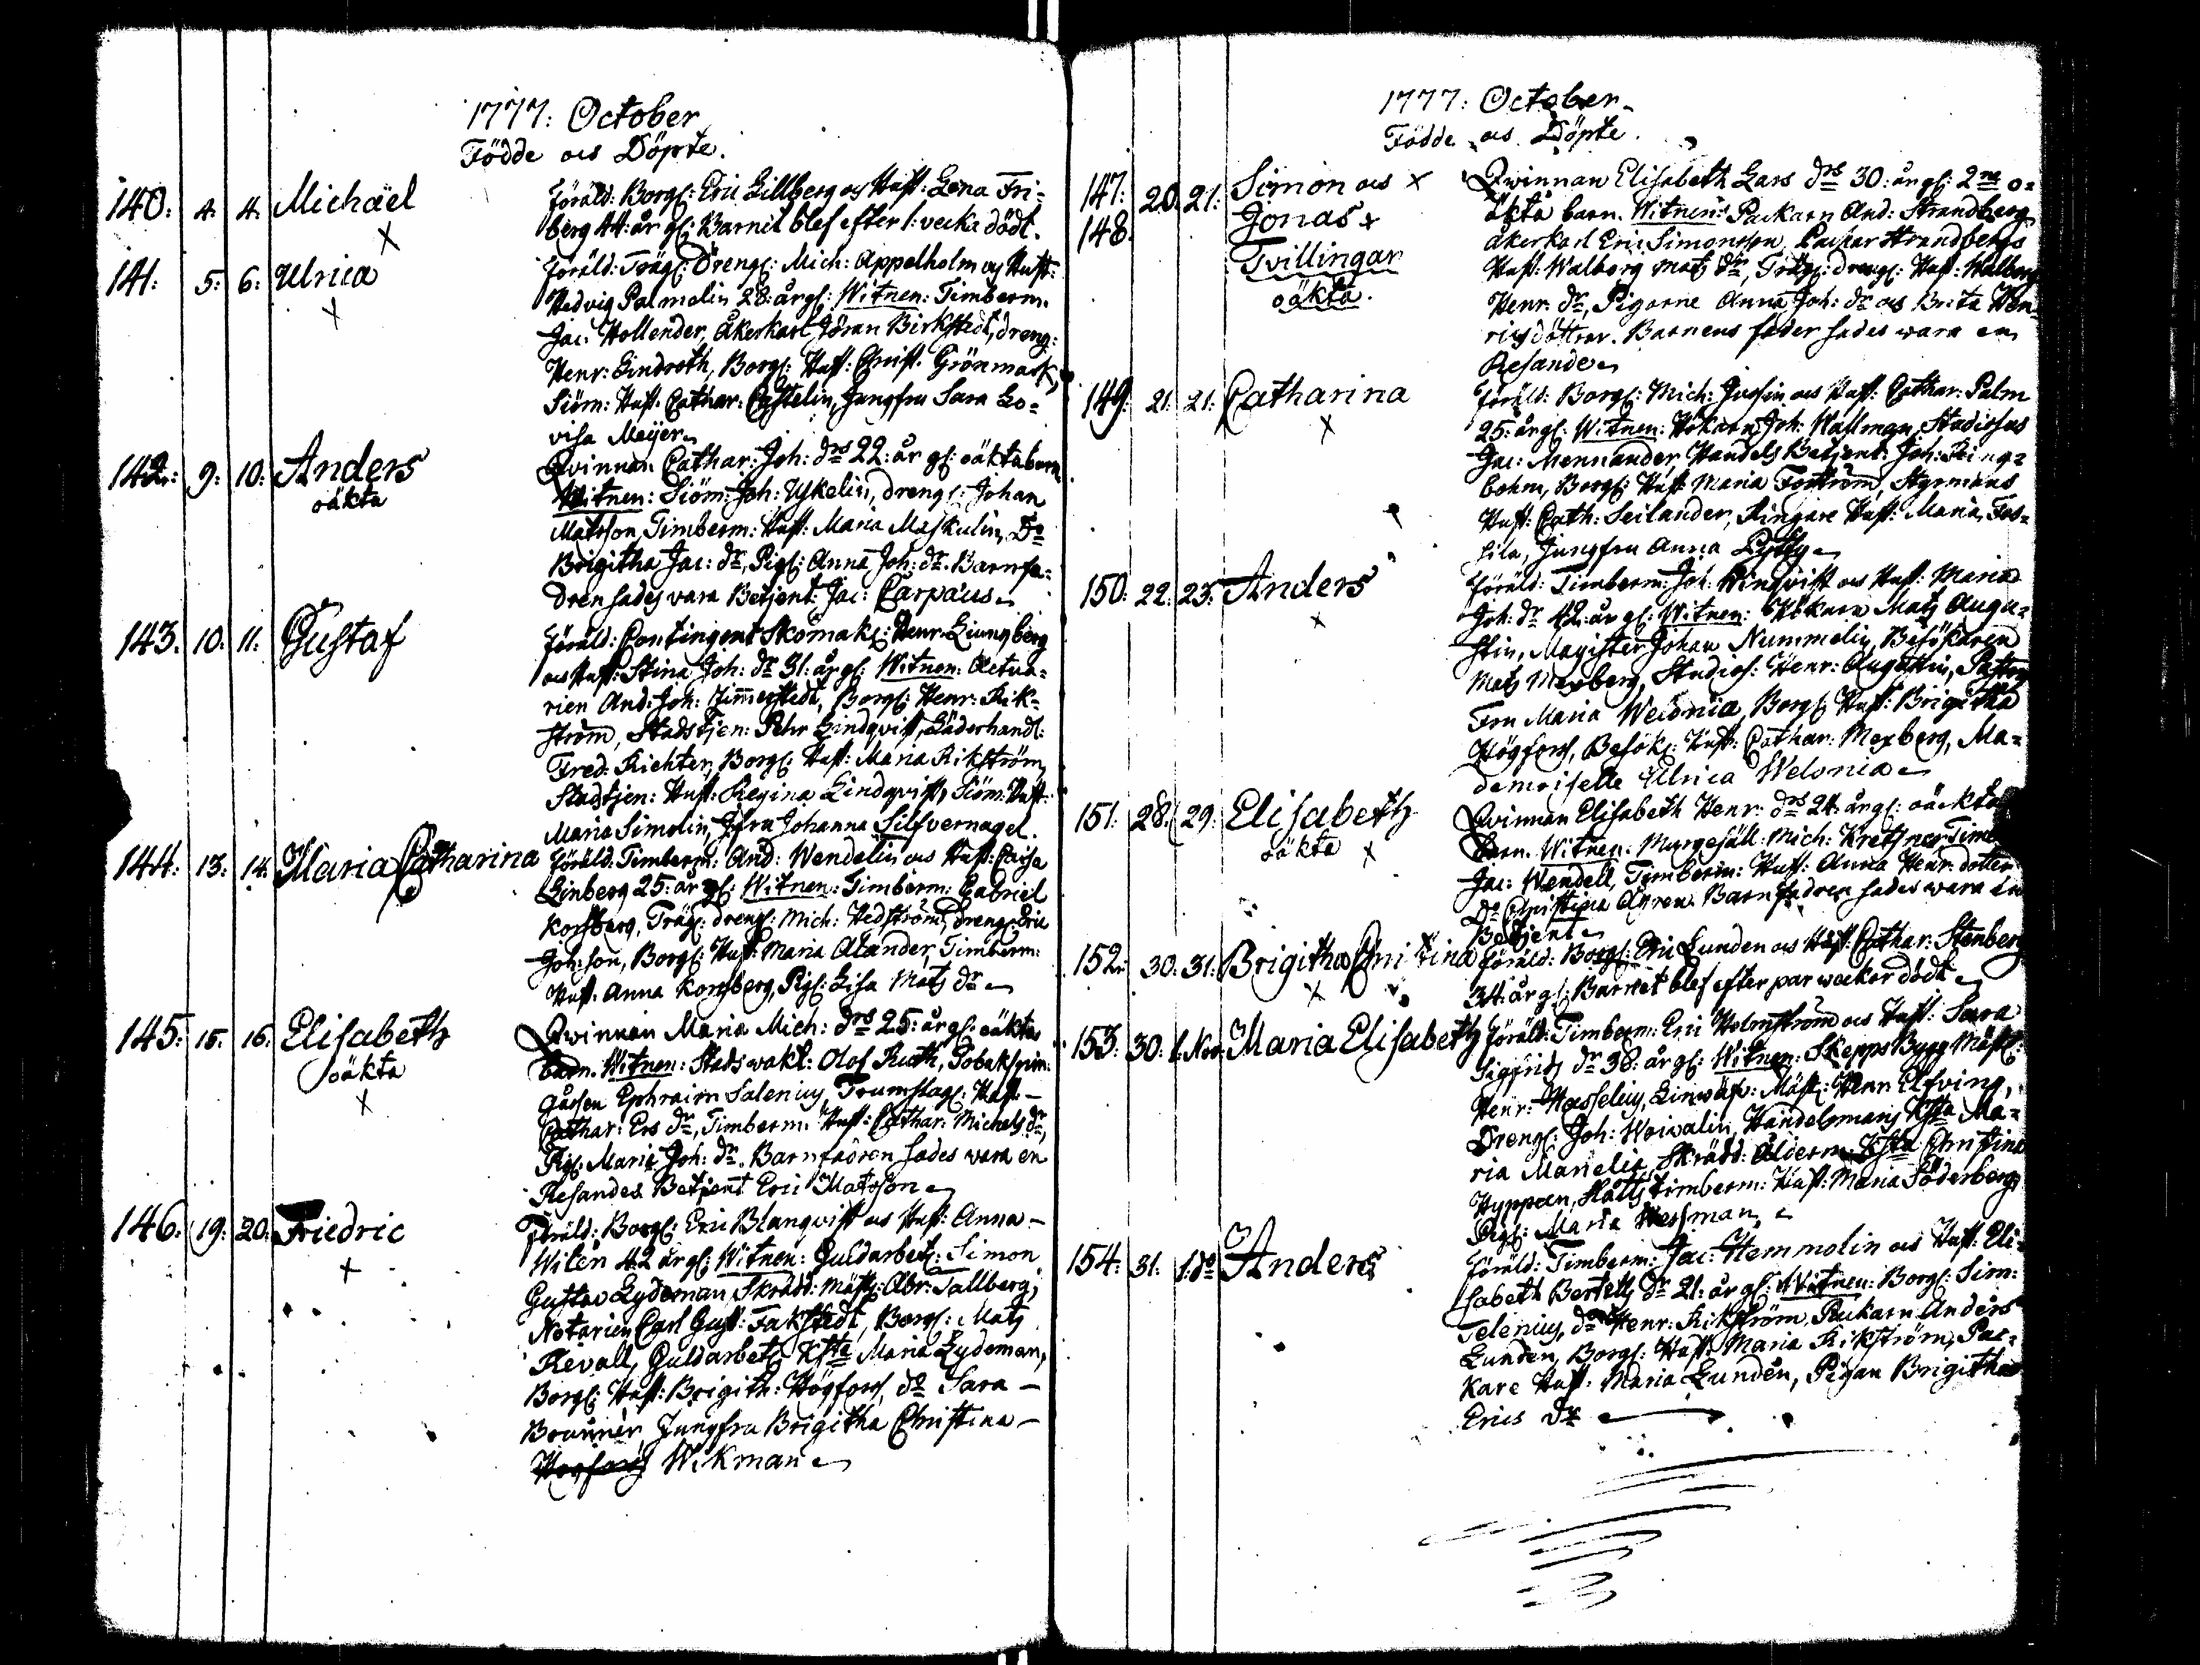 1777: October
Födde och Döpte.
140: 4. 4. Michaël föräld: Borg: Eric Lillberg och Hust: Lena Fri-
berg 44: år gl: Barnet blef efter 1: vecka dödt.
141: 5: 6: Ulrica föräld: Träg: Dreng: Mich: Appelholm och Hust:
Hedvig Palmelin 28: år gl: Witnen: Timberm:
Jac: Hollender, Åkerkarl Jöran Birkstedt, dreng:
Henr: Lindroth, Borg: Hust: Christ: Grönmark,
Siöm: Hust: Cathar: Castelin, Jungfru Sara Lo=
visa Meijer
142: 9: 10: Anders Qvinnan Cathar: Joh: drs 22: år gl: oäkta barn
oäkta Witnen: Siöm: Joh: Ykelin, dreng: Johan
Matsson, Timberm: Hust: Maria Maskulin, Do
Brigitha Jac: dr, Pig: Anna Joh: dr. Barnfa=
dren sades vara Betjent: Jac: Carpæus
143. 10. 11. Gustaf föräld: Contingent Skomak: Henr: Liungberg
och Hust: Stina Joh: dr 31: år gl: Witnen: Actua=
rien And: Joh: Zimmerstedt, Borg: Henr: Rik=
ström, Stadstjen: Pehr Lindqvist, Läderhandl:
Fred: Richter, Borg: Hust: Maria Rikström,
Stadstjen: Hust: Regina Lindqvist, Siöm: Hust:
Maria Simolin, Jfru Johanna Silfvernagel.
144: 13: 14: Maria Catharina föräld: Timberm: And: Wendelin och Hust: Caisa
Linberg 25: år gl: Witnen: Timberm: Gabriel
Korsberg, Träg: dreng: Mich: Hedström, dreng: Eric
Joh: son, Borg: Hust: Maria Alander, Timberm:
Hust: Anna Korsberg, Pig: Lisa Mats dr
145: 15. 16. Elisabeth Qvinnan Maria Mich: drs 25: år gl: oäkta
oäkta barn. Witnen: Stads wakt: Olof Ruth, Tobakspin:
gåssen Ephraim Salenius, Trumslag: Hust:
Cathar: Ers dr, Timberm: Hust: Cathar: Michels dr,
Pig: Maria Joh: dr. Barnfadren sades wara en
Resandes Betjent Eric Matsson
146: 19: 20: Friedric föräld: Borg: Eric Blanqvist och Hust: Anna
Wilén 42 år gl: Witnen: Guldarbet: Simon
Gustav Lydeman, Skräd: Mäst: Abr: Tallberg,
Notarien Carl Gust: Fakstedt, Borg: Mats
Revall, Guldarbet: Hsta Maria Lydeman,
Borg: Hust: Brigith: Högfors, do Sara
Brunnér Jungfru Brigitha Christina
Wikman
1777: October
Födde och Döpte.
147: 20. 21: Simon och Qvinnan Elisabeth Lars drs 30: år gl: 2ne o=
148. Jonas äkta barn. Witnen: Packarn And: Strandberg
Tvillingar åkerkarl Eric Simonsson, Packar Strandbergs
oäkta. Hust: Walborg Mats dr, Träg: dreng: Hust: Walborg
Henr: dr, Pigorne Anna Joh: dr och Brita Hen=
ricsdöttrar. Barnens fader sades wara en
Resande
149: 21: 21: Catharina föräld: Borg: Mich: Juselin och Hust: Cathar: Palm
25: år gl: Witnen: Hökarn Joh: Hallman, Studiosus
Jac: Mennander, Handels Betjent: Joh: Ring=
bohm, Borg: Hust: Maria Forström, Styrmans
Hust: Cath: Seilander, Ringare Hust: Maria Fos=
sila, Jungfru Anna Lythy
150: 22: 23: Anders föräld: Timberm: Joh: Winqvist och Hust: Maria
Joh: dr 42: år gl: Witnen: Hökarn Mats Augu=
stin, Magister Johan Nummelin, Besökaren
Mats Mexberg, Studios: Henr: Augustin, Pastors
Fru Maria Weldnia, Borg: Hust: Brigitha
Högfors, Besök: Hust: Cathar: Mexberg, Ma=
demoiselle Ulrica Welonia
151: 28. 29: Elisabeth Qvinnan Elisabeth Henr: drs 24: år gl: oäckta
oäkta barn. Witnen: Murgesäll: Mich: Kretsner, Timb
Jac: Wendell, Timberm: Hust: Anna Henr: dotter
Do Christina Agren. Barnfadren sades wara en
Betjent
152: 30. 31: Brigitha Christina föräld: Borg: Eric Lunden och Hust: Cathar: Stenberg
34: år gl: Barnet blef efter par weckor dödt
153: 30: 1. Nov: Maria Elisabeth föräld: Timberm: Eric Holmström och Hust: Sara
Sigfrids dr 38: år gl: Witnen: Skepps Bygg Mäst:
Henr: Hasselius, Linwäf: Mäst: Henr Elfving,
Dreng: Joh: Woiwalin, Handelsmans Hsta Ma=
ria Manelia, Skräd: Ålderm: Hsta Christina
Hyppeen, Slotts timberm: Hust: Maria Söderberg,
Pig: Maria Wessman
154: 31. 1: do Anders föräld: Timberm: Jac: Hemmolin och Hust: Eli=
sabeth Bertels dr 21: år gl: Witnen: Borg: Sim:
Telenius, do Henr: Rikström, Packarn Anders
Lunden, Borg: Hust: Maria Rikström, Pac=
kare Hust: Maria Lundén, Pigan Brigitha
Erics dr